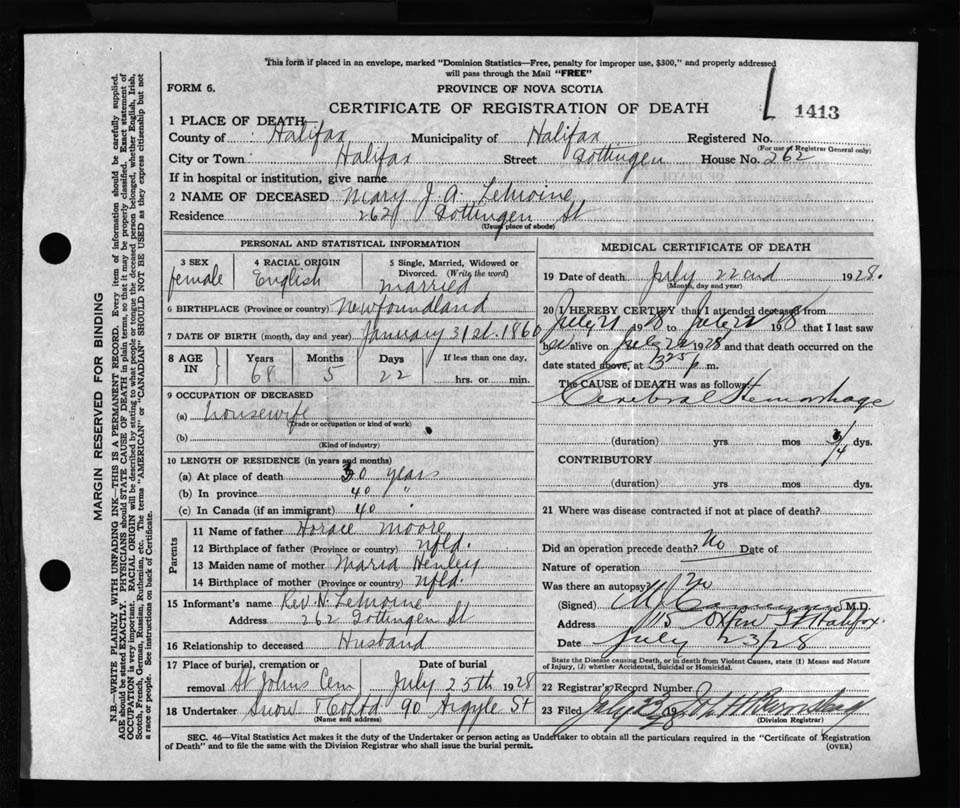 This form if placed in an envelope, marked "Dominion Statistics—Free, penalty for improper use, $300," and properly addressed
will pass through the Mail "FREE"
FORM 6.
PROVINCE OF NOVA SCOTIA
CERTIFICATE OF REGISTRATION OF DEATH
1413
1 PLACE OF DEATH
County of Halifax Municipality of Halifax Registered No.
(For use of Registrar General only)
City or Town Halifax Street Gottingen House No. 262
If in hospital or institution, give name
2 NAME OF DECEASED Mary J. A. LeMoine
Residence 262 Gottingen St
(Usual place of abode)
PERSONAL AND STATISTICAL INFORMATION
3 SEX female
4 RACIAL ORIGIN English
5 Single, Married, Widowed or
Divorced. (Write the word)
married
6 BIRTHPLACE (Province or country) Newfoundland
7 DATE OF BIRTH (month, day and year) January 31st. 1860
8 AGE IN Years 68 Months 5 Days 22 If less than one day,
hrs. or min.
9 OCCUPATION OF DECEASED
(a) housewife
(Trade or occupation or kind of work)
(b)
(Kind of industry)
10 LENGTH OF RESIDENCE (in years and months)
(a) At place of death 30 years
(b) In province 40 "
(c) In Canada (if an immigrant) 40 "
Parents
11 Name of father Horace Moore
12 Birthplace of father (Province or country) nfld.
13 Maiden name of mother Maria Henley
14 Birthplace of mother (Province or country) nfld.
15 Informant's name Rev. N. LeMoine
Address 262 Gottingen St
16 Relationship to deceased Husband
17 Place of burial, cremation or Date of burial
removal St Johns Cem July 25th 1928
18 Undertaker Snow & Co Ltd 90 Argyle St
(Name and address)
MEDICAL CERTIFICATE OF DEATH
19 Date of death July 22nd 1928.
(Month, day and year)
20 I HEREBY CERTIFY that I attended deceased from
July 21 1928 to July 22 1928 that I last saw
her alive on July 22 1928 and that death occurred on the
date stated above, at 3 25 p m.
The CAUSE of DEATH was as follows:
Cerebral Hemorrhage
(duration) yrs mos 3/4 dys.
CONTRIBUTORY
(duration) yrs mos dys.
21 Where was disease contracted if not at place of death?
Did an operation precede death? No Date of
Nature of operation
Was there an autopsy? No
(Signed) M.D.
Address St Halifax
Date July 23/28
State the Disease causing Death, or in death from Violent Causes, state (1) Means and Nature
of Injury, (2) whether Accidental, Suicidal or Homicidal.
22 Registrar's Record Number
23 Filed July 19
(Division Registrar)
SEC. 46—Vital Statistics Act makes it the duty of the Undertaker or person acting as Undertaker to obtain all the particulars required in the "Certificate of Registration
of Death" and to file the same with the Division Registrar who shall issue the burial permit.
(OVER)
MARGIN RESERVED FOR BINDING
N.B.—WRITE PLAINLY WITH UNFADING INK—THIS IS A PERMANENT RECORD. Every item of information should be carefully supplied.
AGE should be stated EXACTLY. PHYSICIANS should STATE CAUSE OF DEATH in plain terms, so that it may be properly classified. Exact statement of
OCCUPATION is very important. RACIAL ORIGIN will be described by stating to what people or tongue the deceased person belonged, whether English, Irish,
Scotch, French, German, Russian, Ruthenian, etc. The terms "AMERICAN" or "CANADIAN" SHOULD NOT BE USED as they express citizenship but not
a race or people. See instructions on back of Certificate.